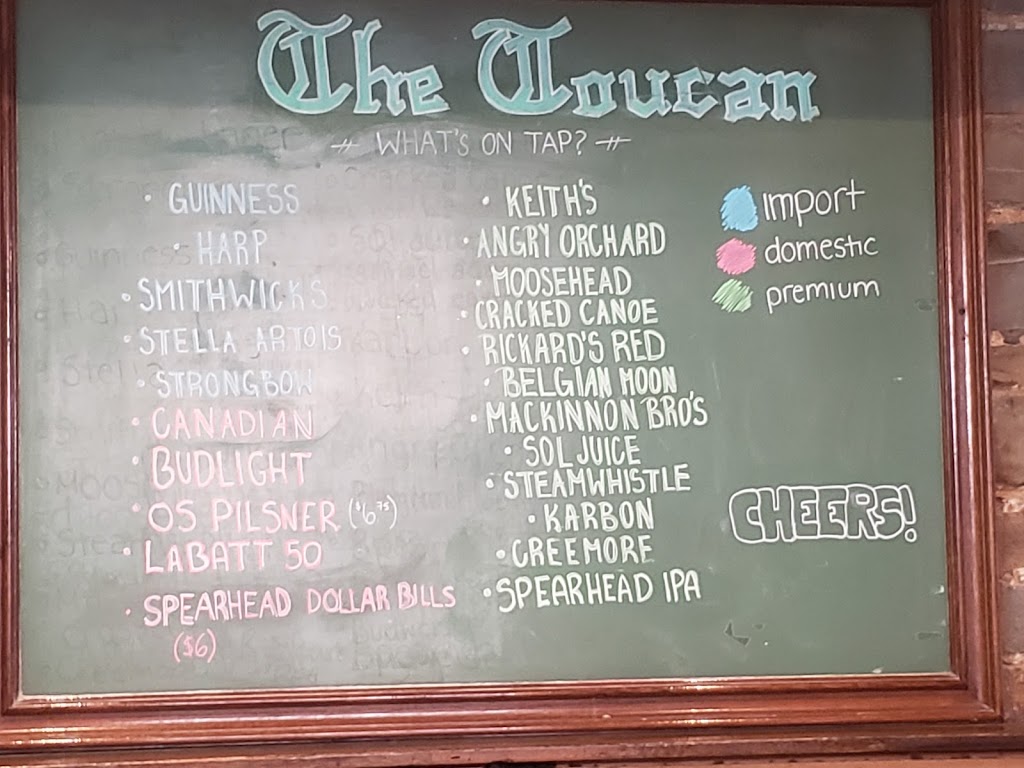 The Toucan
WHAT'S ON TAP?
• GUINNESS
• HARP
• SMITHWICKS
• STELLA ARTOIS
• STRONGBOW
• CANADIAN
• BUDLIGHT
• OS PILSNER ($6.75)
• LABATT 50
• SPEARHEAD DOLLAR BILLS
($6)
• KEITH'S
• ANGRY ORCHARD
• MOOSEHEAD
• CRACKED CANOE
• RICKARD'S RED
• BELGIAN MOON
• MACKINNON BRO'S
• SOL JUICE
• STEAMWHISTLE
• KARBON
• CREEMORE
• SPEARHEAD IPA
import
domestic
premium
CHEERS!